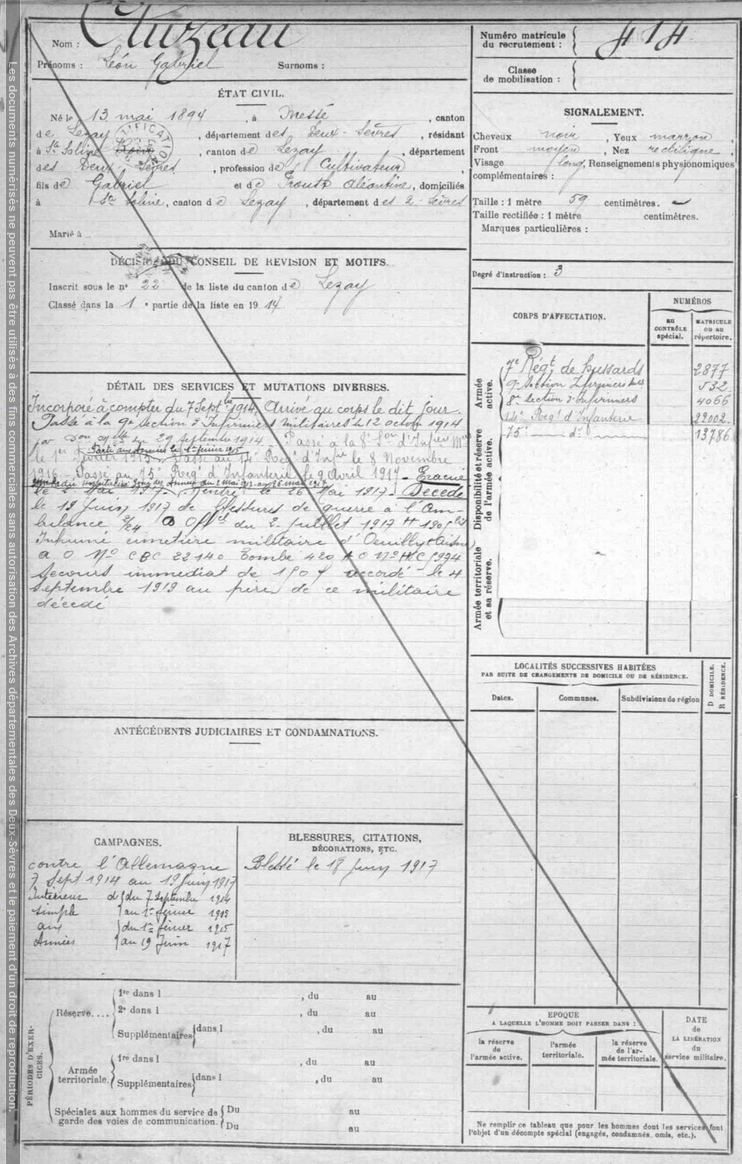 Les documents numérisés ne peuvent pas être utilisés à des fins commerciales sans autorisation des Archives départementales des Deux-Sèvres et le paiement d'un droit de reproduction.
Nom : Cluzeau
Prénoms : Léon Gabriel Surnoms :
ÉTAT CIVIL.
Né le 13 mai 1894, à Messé, canton
de Lezay, département des Deux-Sèvres, résidant
à Ste Soline, canton de Lezay, département
des Deux Sèvres, profession de Cultivateur
fils de Gabriel et de Proust, domiciliés
à Ste Soline, canton de Lezay, département des 2-Sèvres
Marié à
DÉCISION DU CONSEIL DE REVISION ET MOTIFS.
Inscrit sous le n° 22 de la liste du canton de Lezay
Classé dans la 1e partie de la liste en 1914.
DÉTAIL DES SERVICES ET MUTATIONS DIVERSES.
Incorporé à compter du 7 Septbre 1914. Arrivé au corps le dit jour.
Passé à la 9e Section d'Infirmiers militaires le 12 octob 1914
29 Septembre 1914. Passé à la 8e Son d'Infiers Mres
le 1er février 1915. Passé au 14e Régt d'Infie le 8 Novembre
1916. Passé au 75e Régt d'Infanterie le 9 Avril 1917. Evacué
le 2 Mai 1917. Rentré le 26 Mai 1917. Décédé
le 19 Juin 1917 de blessures de guerre à l'Am-
bulance 2/24 du 2 Juillet 1917
Inhumé cimetière militaire d'Oeuilly (Aisne)
Tombe 420
Secours immédiat de 150 f accordé le 4
Septembre 1919 au père de ce militaire
décédé
ANTÉCÉDENTS JUDICIAIRES ET CONDAMNATIONS.
CAMPAGNES.
contre l'Allemagne
7 Sept 1914 au 19 Juin 1917
Intérieur du 7 Septembre 1914
simple au 1er février 1915
aux du 1er février 1915
Armées au 19 Juin 1917
BLESSURES, CITATIONS,
DÉCORATIONS, ETC.
Blessé le 18 juin 1917
PÉRIODES D'EXER-
CICES.
Réserve....
1re dans l , du au
2e dans l , du au
Supplémentaires dans l , du au
Armée
territoriale.
1re dans l , du au
Supplémentaires dans l , du au
Spéciales aux hommes du service de
garde des voies de communication.
Du au
Du au
Numéro matricule
du recrutement : 414
Classe
de mobilisation :
SIGNALEMENT.
Cheveux noir, Yeux marron
Front moyen, Nez rectiligne
Visage long, Renseignements physionomiques
complémentaires :
Taille : 1 mètre 59 centimètres.
Taille rectifiée : 1 mètre centimètres.
Marques particulières :
Degré d'instruction : 3
CORPS D'AFFECTATION.
NUMÉROS
AU
CONTRÔLE
spécial.
MATRICULE
OU AU
répertoire.
Armée
active.
7e Régt de Hussards 2877
9e Section d'Infirmiers Mres 532
8e Section d'Infirmiers 4066
14e Régt d'Infanterie 22002
75e do 13786
Disponibilité et réserve
de l'armée active.
Armée territoriale
et sa réserve.
LOCALITÉS SUCCESSIVES HABITÉES
PAR SUITE DE CHANGEMENTS DE DOMICILE OU DE RÉSIDENCE.
D DOMICILE.
R RÉSIDENCE.
Dates. Communes. Subdivisions de région
EPOQUE
A LAQUELLE L'HOMME DOIT PASSER DANS :
la réserve
de
l'armée active.
l'armée
territoriale.
la réserve
de l'ar-
mée territoriale.
DATE
de
LA LIBÉRATION
du
service militaire.
Ne remplir ce tableau que pour les hommes dont les services font
l'objet d'un décompte spécial (engagés, condamnés, omis, etc.).